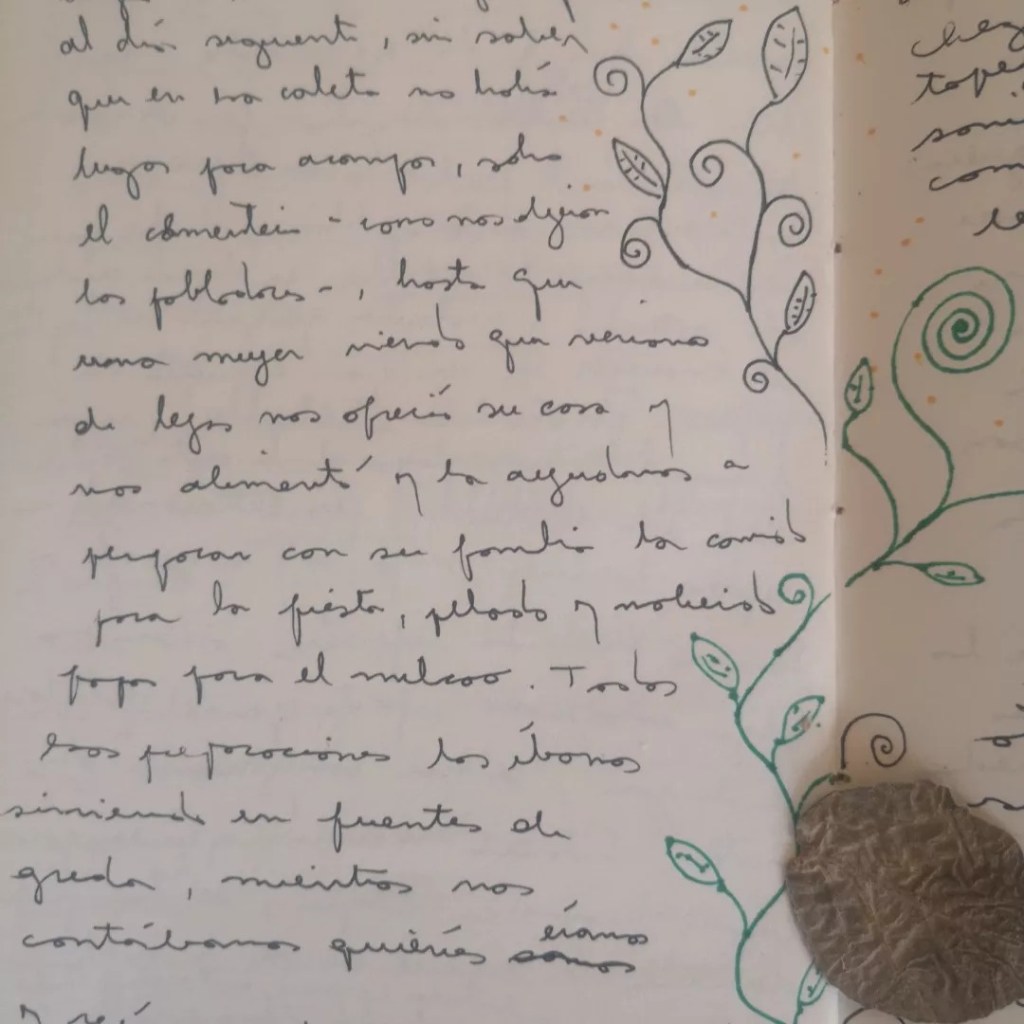 al día siguiente, sin saber
que en esa caleta no había
lugar para acampar, sólo
el cementerio - como nos dijeron
los pobladores -, hasta que
una mujer viendo que veníamos
de lejos nos ofreció su casa y
nos alimentó y la ayudamos a
preparar con su familia la comida
para la fiesta, pelando y moliendo
papas para el milcao. Todas
esas preparaciones las íbamos
sirviendo en fuentes de
greda, mientras nos
contábamos quiénes éramos
somos
chez
come